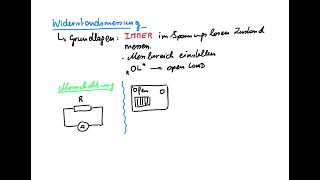 Widerstandsmessung
↳ Grundlagen: IMMER im Spannungslosen Zustand
messen.
· Messbereich einstellen
"OL" → open Load
Messschaltung
R
Open